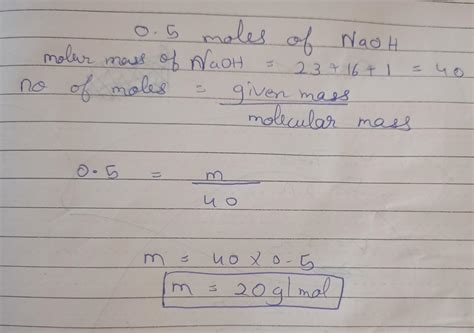 0.5 moles of NaOH
molar mass of NaOH = 23 + 16 + 1 = 40
no of moles = given mass
molecular mass
0.5 = m
40
m = 40 x 0.5
m = 20 g/mol